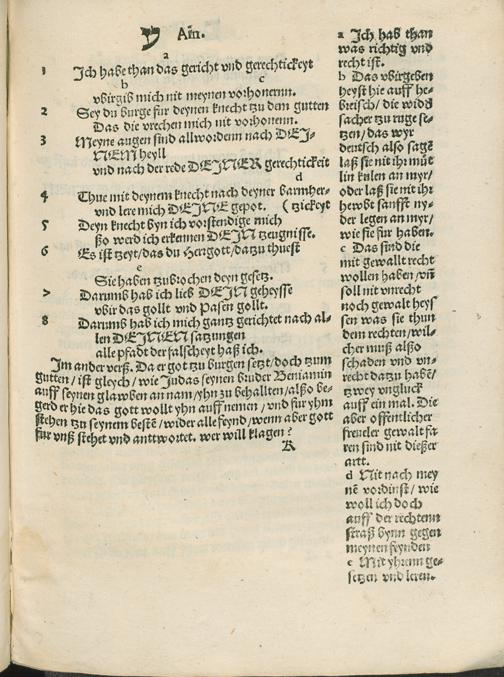 ע Ain.
a
1 Ich habe than das gericht vnd gerechtickeyt
b c
vbirgib mich nit meynen vorhonernn.
2 Sey du burge fur deynen knecht tzu dem gutten
Das die vrechen mich nit vorhonenn.
3 Meyne augen sind allwordenn nach DEJ-
NEM heyll
vnd nach der rede DEJNER gerechtickeit
d
4 Thue mit deynem knecht nach deyner barmher-
vnd lere mich DEJNE gepot. ( tzickeyt
5 Deyn knecht byn ich vorstendige mich
ßo werd ich erkennen DEJN tzeugnisse.
6 Es ist tzeyt/das du Hergott/datzu thuest
e
Sie haben tzubrochen deyn gesetz.
7 Darumb hab ich lieb DEJN geheysse
vbir das gollt vnd Pasen gollt.
8 Darumb hab ich mich gantz gerichtet nach al-
len DEJNEN satzungen
alle pfadt der falscheyt haß ich.
Im ander verß. Da er got tzu burgen setzt/doch tzum
gutten/ist gleych/wie Judas seynen bruder Beniamin
auff seynen glawben an nam/yhn zu behallten/alßo be-
gerd er hie das gott wollt yhn auff nemen/vnd fur yhm
stehen tzu seynem bestē/wider alle feynd/wenn aber gott
fur vnß stehet vnd anttwortet. wer will klagen?
K
a Ich hab than
was richtig vnd
recht ist.
b Das vbirgeben
heyst hie auff he-
breisch/die widd
sacher zu ruge se-
tzen/das wyr
deutsch also sagē
laß sie nit ihr müt
lin kulen an myr/
oder laß sie nit ihr
hewbt sanfft ny-
der legen an myr/
wie sie fur haben.
c Das sind die
mit gewallt recht
wollen haben/vñ
soll nit vnrecht
noch gewalt heys
sen was sie thun
dem rechten/wil-
cher muß alßo
schaden vnd vn-
recht datzu habē/
tzwey vngluck
auff ein mal. Die
aber offentlicher
freueler gewalt fa
ren sind nit dießer
artt.
d Nit nach mey
nē vordinst/wie
woll ich doch
auff der rechtenn
straß bynn gegen
meynen feynden
e Mit yhrem ge-
setzen vnd leren.